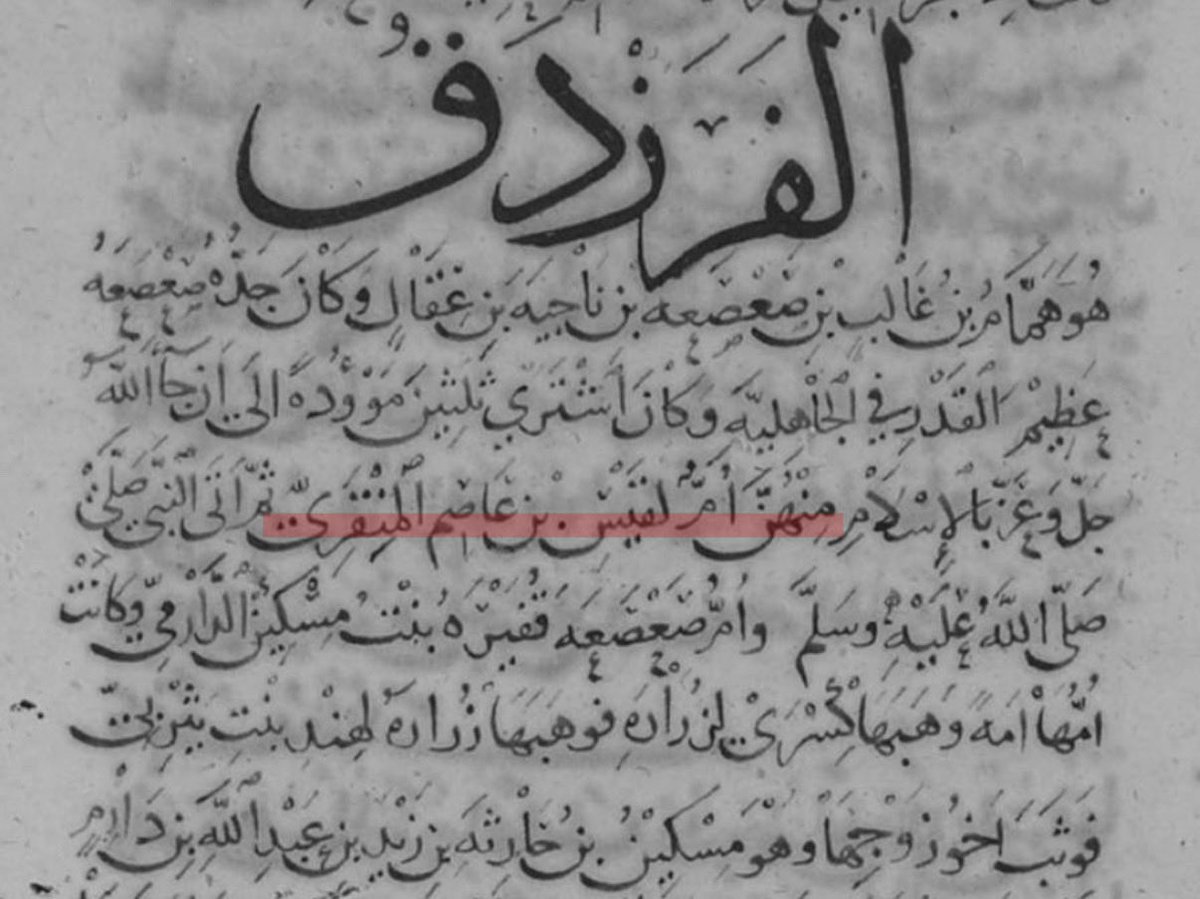 الفرزدق
هُوَ هَمَّامُ بْنُ غَالِبِ بْنِ صَعْصَعَه بْنِ نَاجِيَه بْنِ عِقَالٍ وَكَانَ جَدُّهُ صَعْصَعَهُ
عَظِيْمَ الْقَدْرِ فِي الْجَاهِليَّه وَكَانَ اشْتَرَي ثَلثِينَ مَوْؤُدَةً الَي اَنْ جَآ اللَّه
جَلَّ وَعَزَّ بِالإِسْلَامْ مِنْهُنَّ اُمُّ لقَيْسِ بْنِ عَاصِمِ المِنْقَرِيّ ثُمَّ اَتَى النَّبِيَّ صَلَّى
صَلَّى اللَّهُ عَلَيْهِ وَسَلَّمَ وَاُمُّ صَعْصَعَه قُفَيْرَهُ بِنْتُ مِسْكِيْنٍ الدَّارِمِيّ وَكَانَتْ
اُمُّهَا اَمَةً وَهَبَهَا كِسْرَيْ لزُرَارَهِ فوَهَبَهَا زُرَارَهُ لهِنْدِ بِنْتِ يَثْرِبيّ
فَوثَبَ اَخُو زَوْجِهَا وَهْوَ مِسْكِيْنُ بْنُ حَارِثَه بْنِ زَيْدِ بْنِ عَبْدِ اللَّهِ بْنِ دَارِم